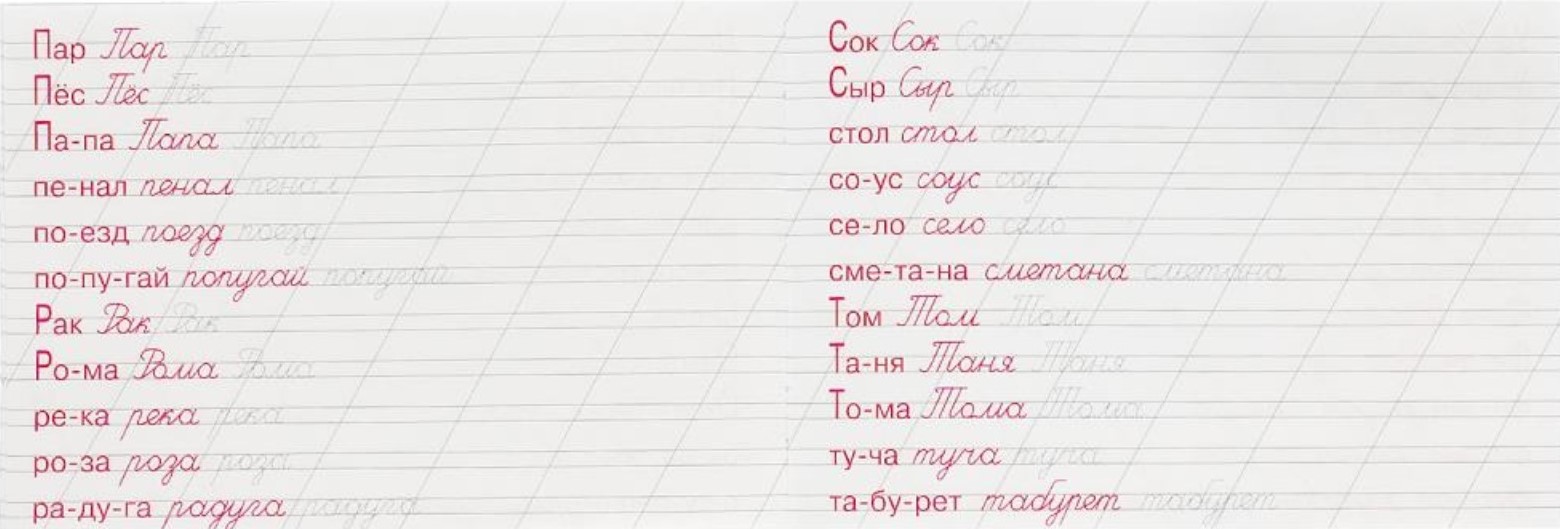 Пар Пар Пар
Пёс Пёс Пёс
Па-па Папа Папа
пе-нал пенал пенал
по-езд поезд поезд
по-пу-гай попугай попугай
Рак Рак Рак
Ро-ма Рома Рома
ре-ка река река
ро-за роза роза
ра-ду-га радуга радуга
Сок Сок Сок
Сыр Сыр Сыр
стол стол стол
со-ус соус соус
се-ло село село
сме-та-на сметана сметана
Том Том Том
Та-ня Таня Таня
То-ма Тома Тома
ту-ча туча туча
та-бу-рет табурет табурет